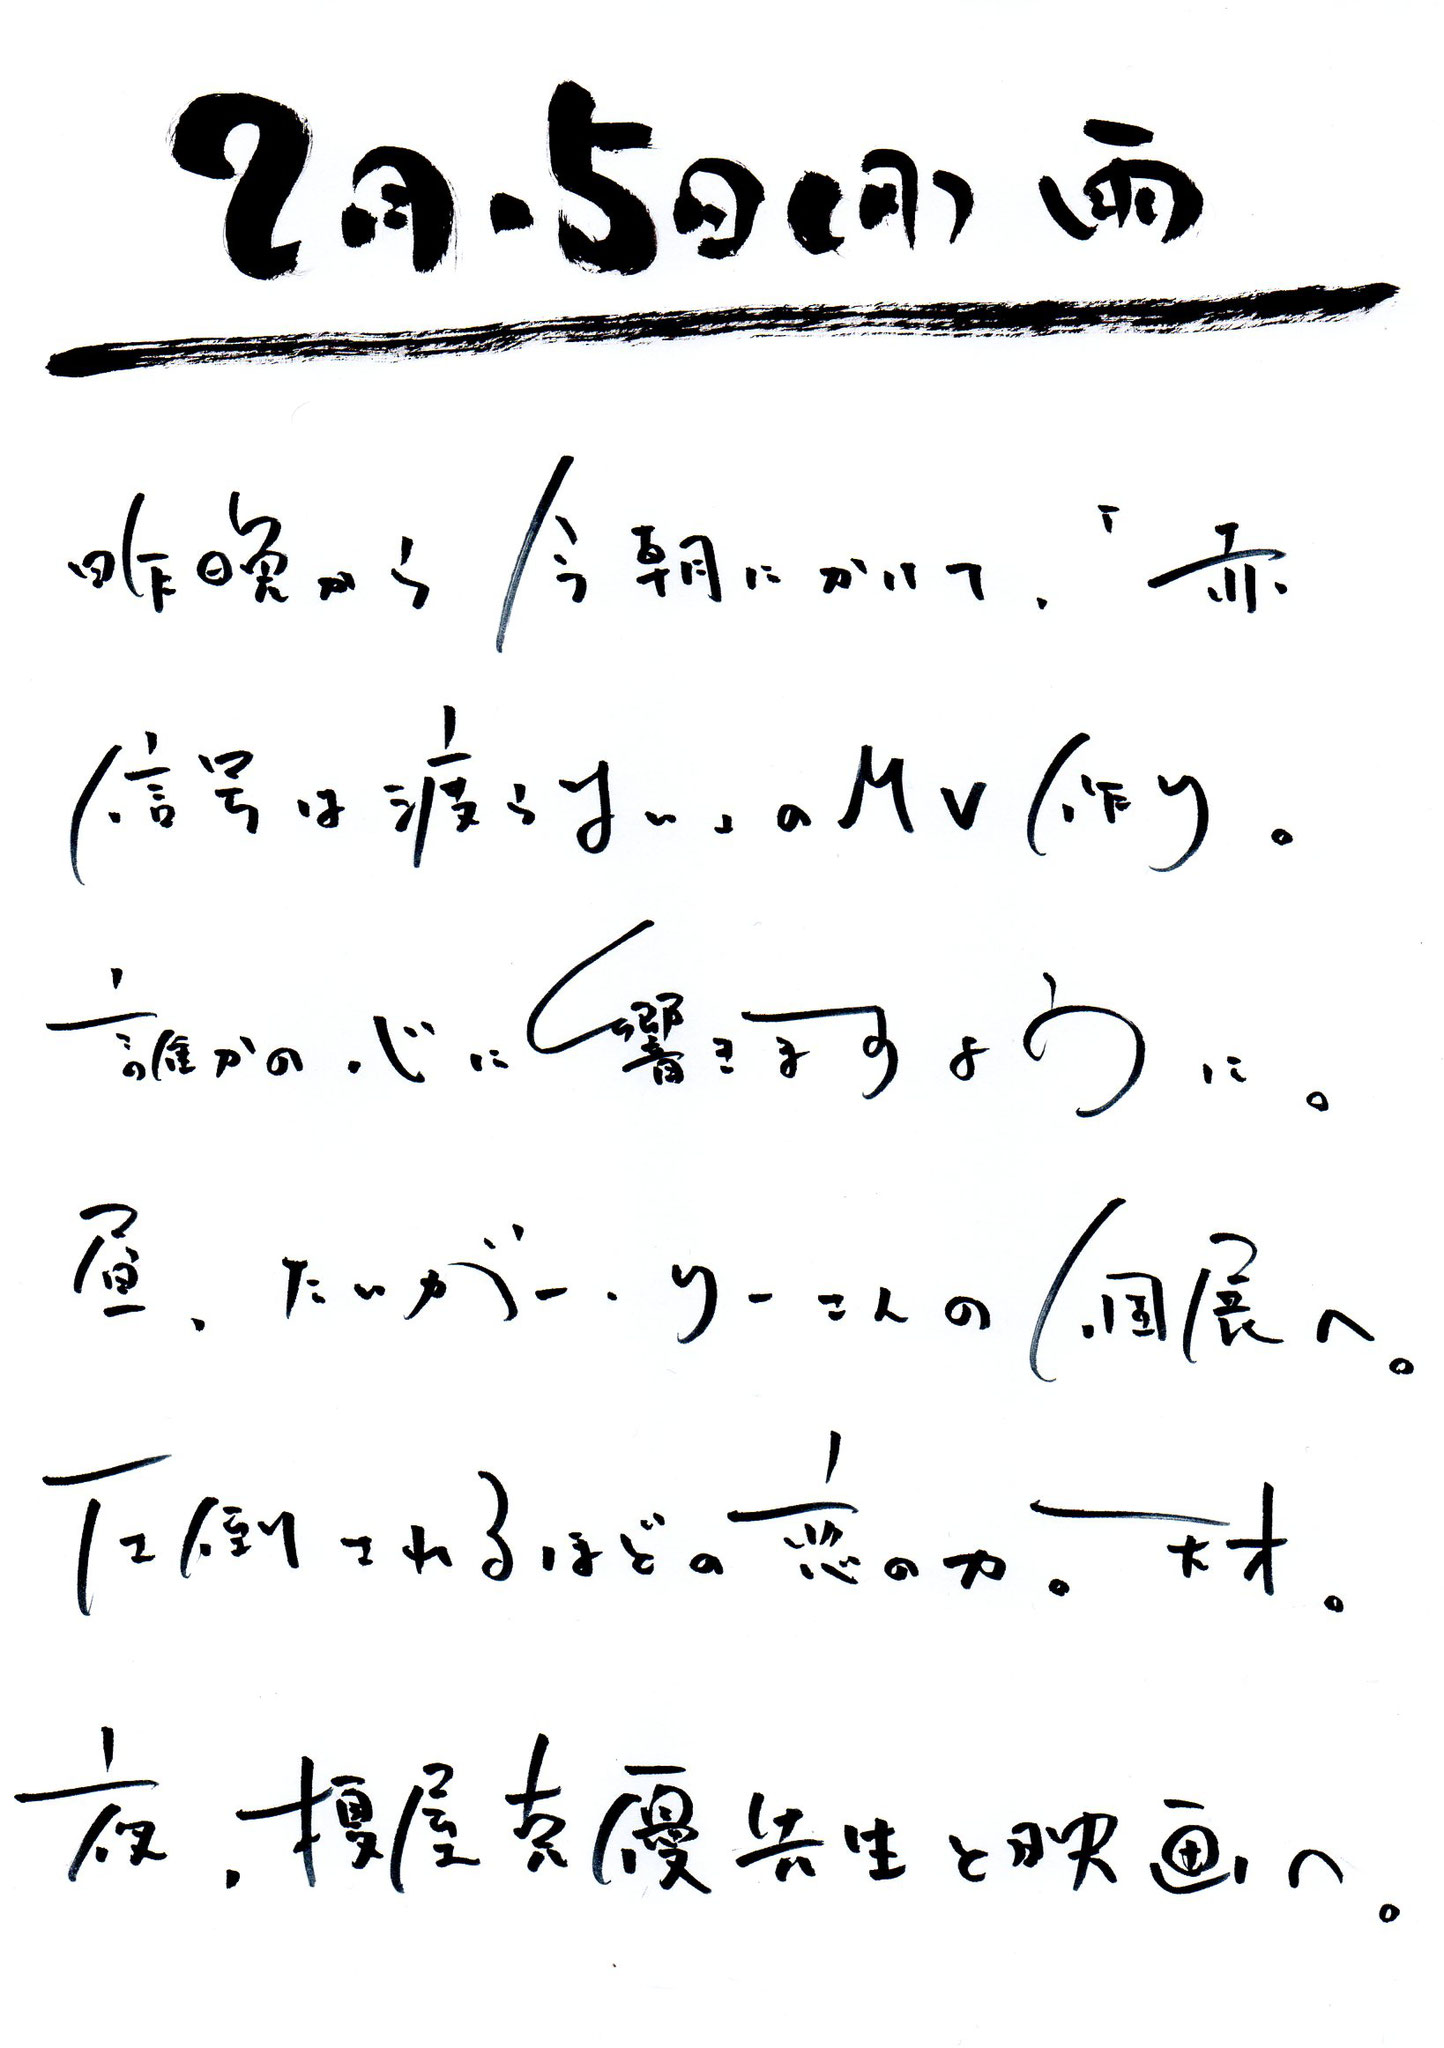 2月.5日(月) 雨
昨晩から今朝にかけて、「赤
信号は渡らない」のMV作り。
誰かの心に響きますように。
昼、たいがー・りーさんの個展へ。
圧倒されるほどの恋の力。天才。
夜、榎屋克優先生と映画へ。